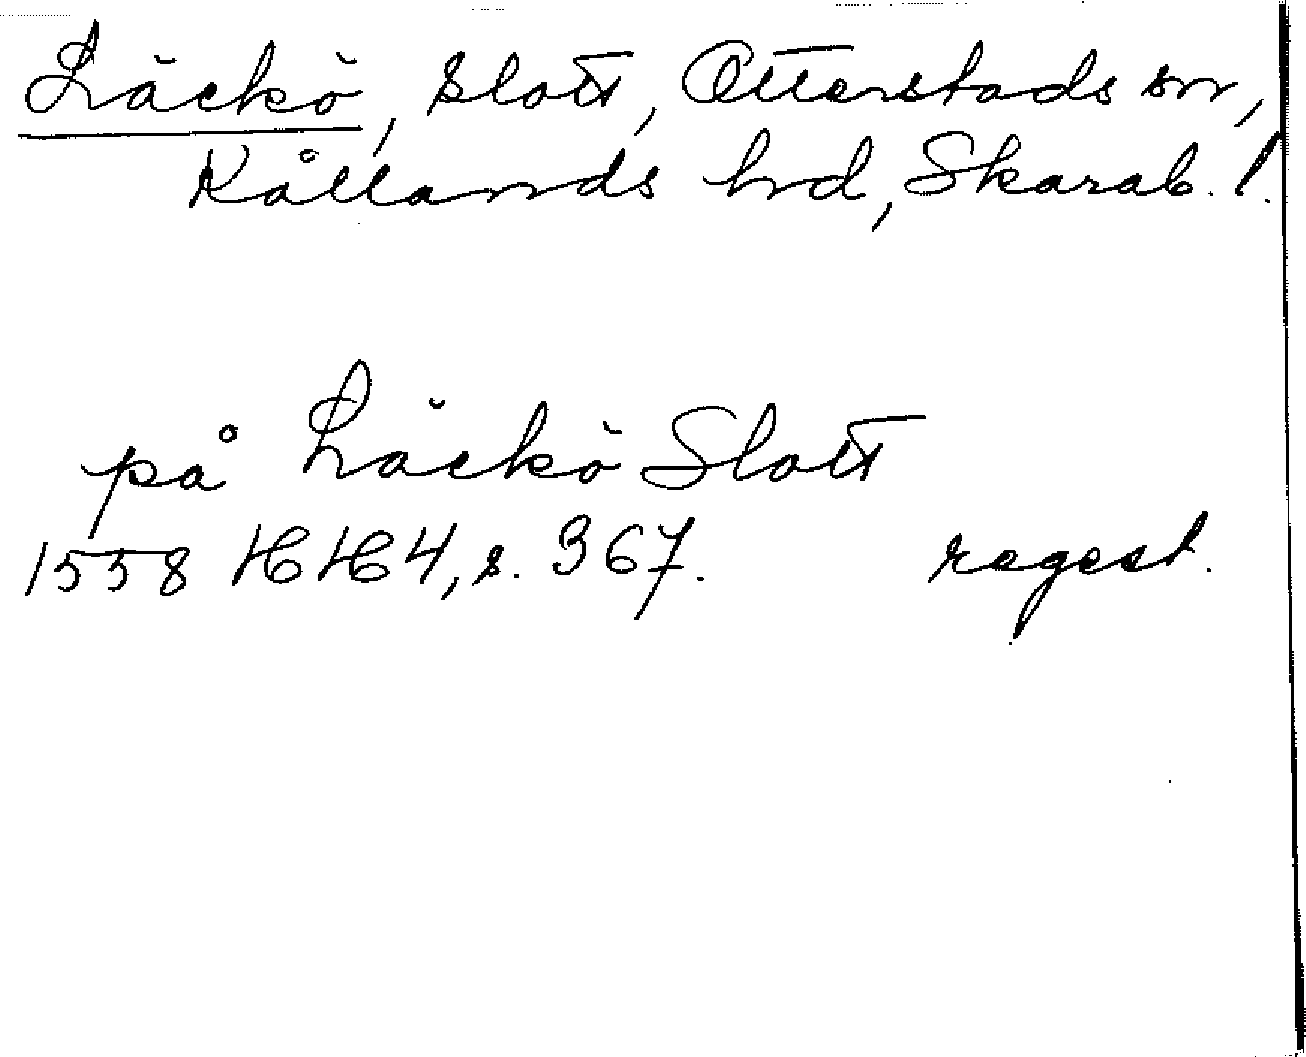 Läckö, slott, Otterstads sn,
Kållands hd, Skarab. l.
på Läckö Slott
1558 HH 4, s. 367. regest.